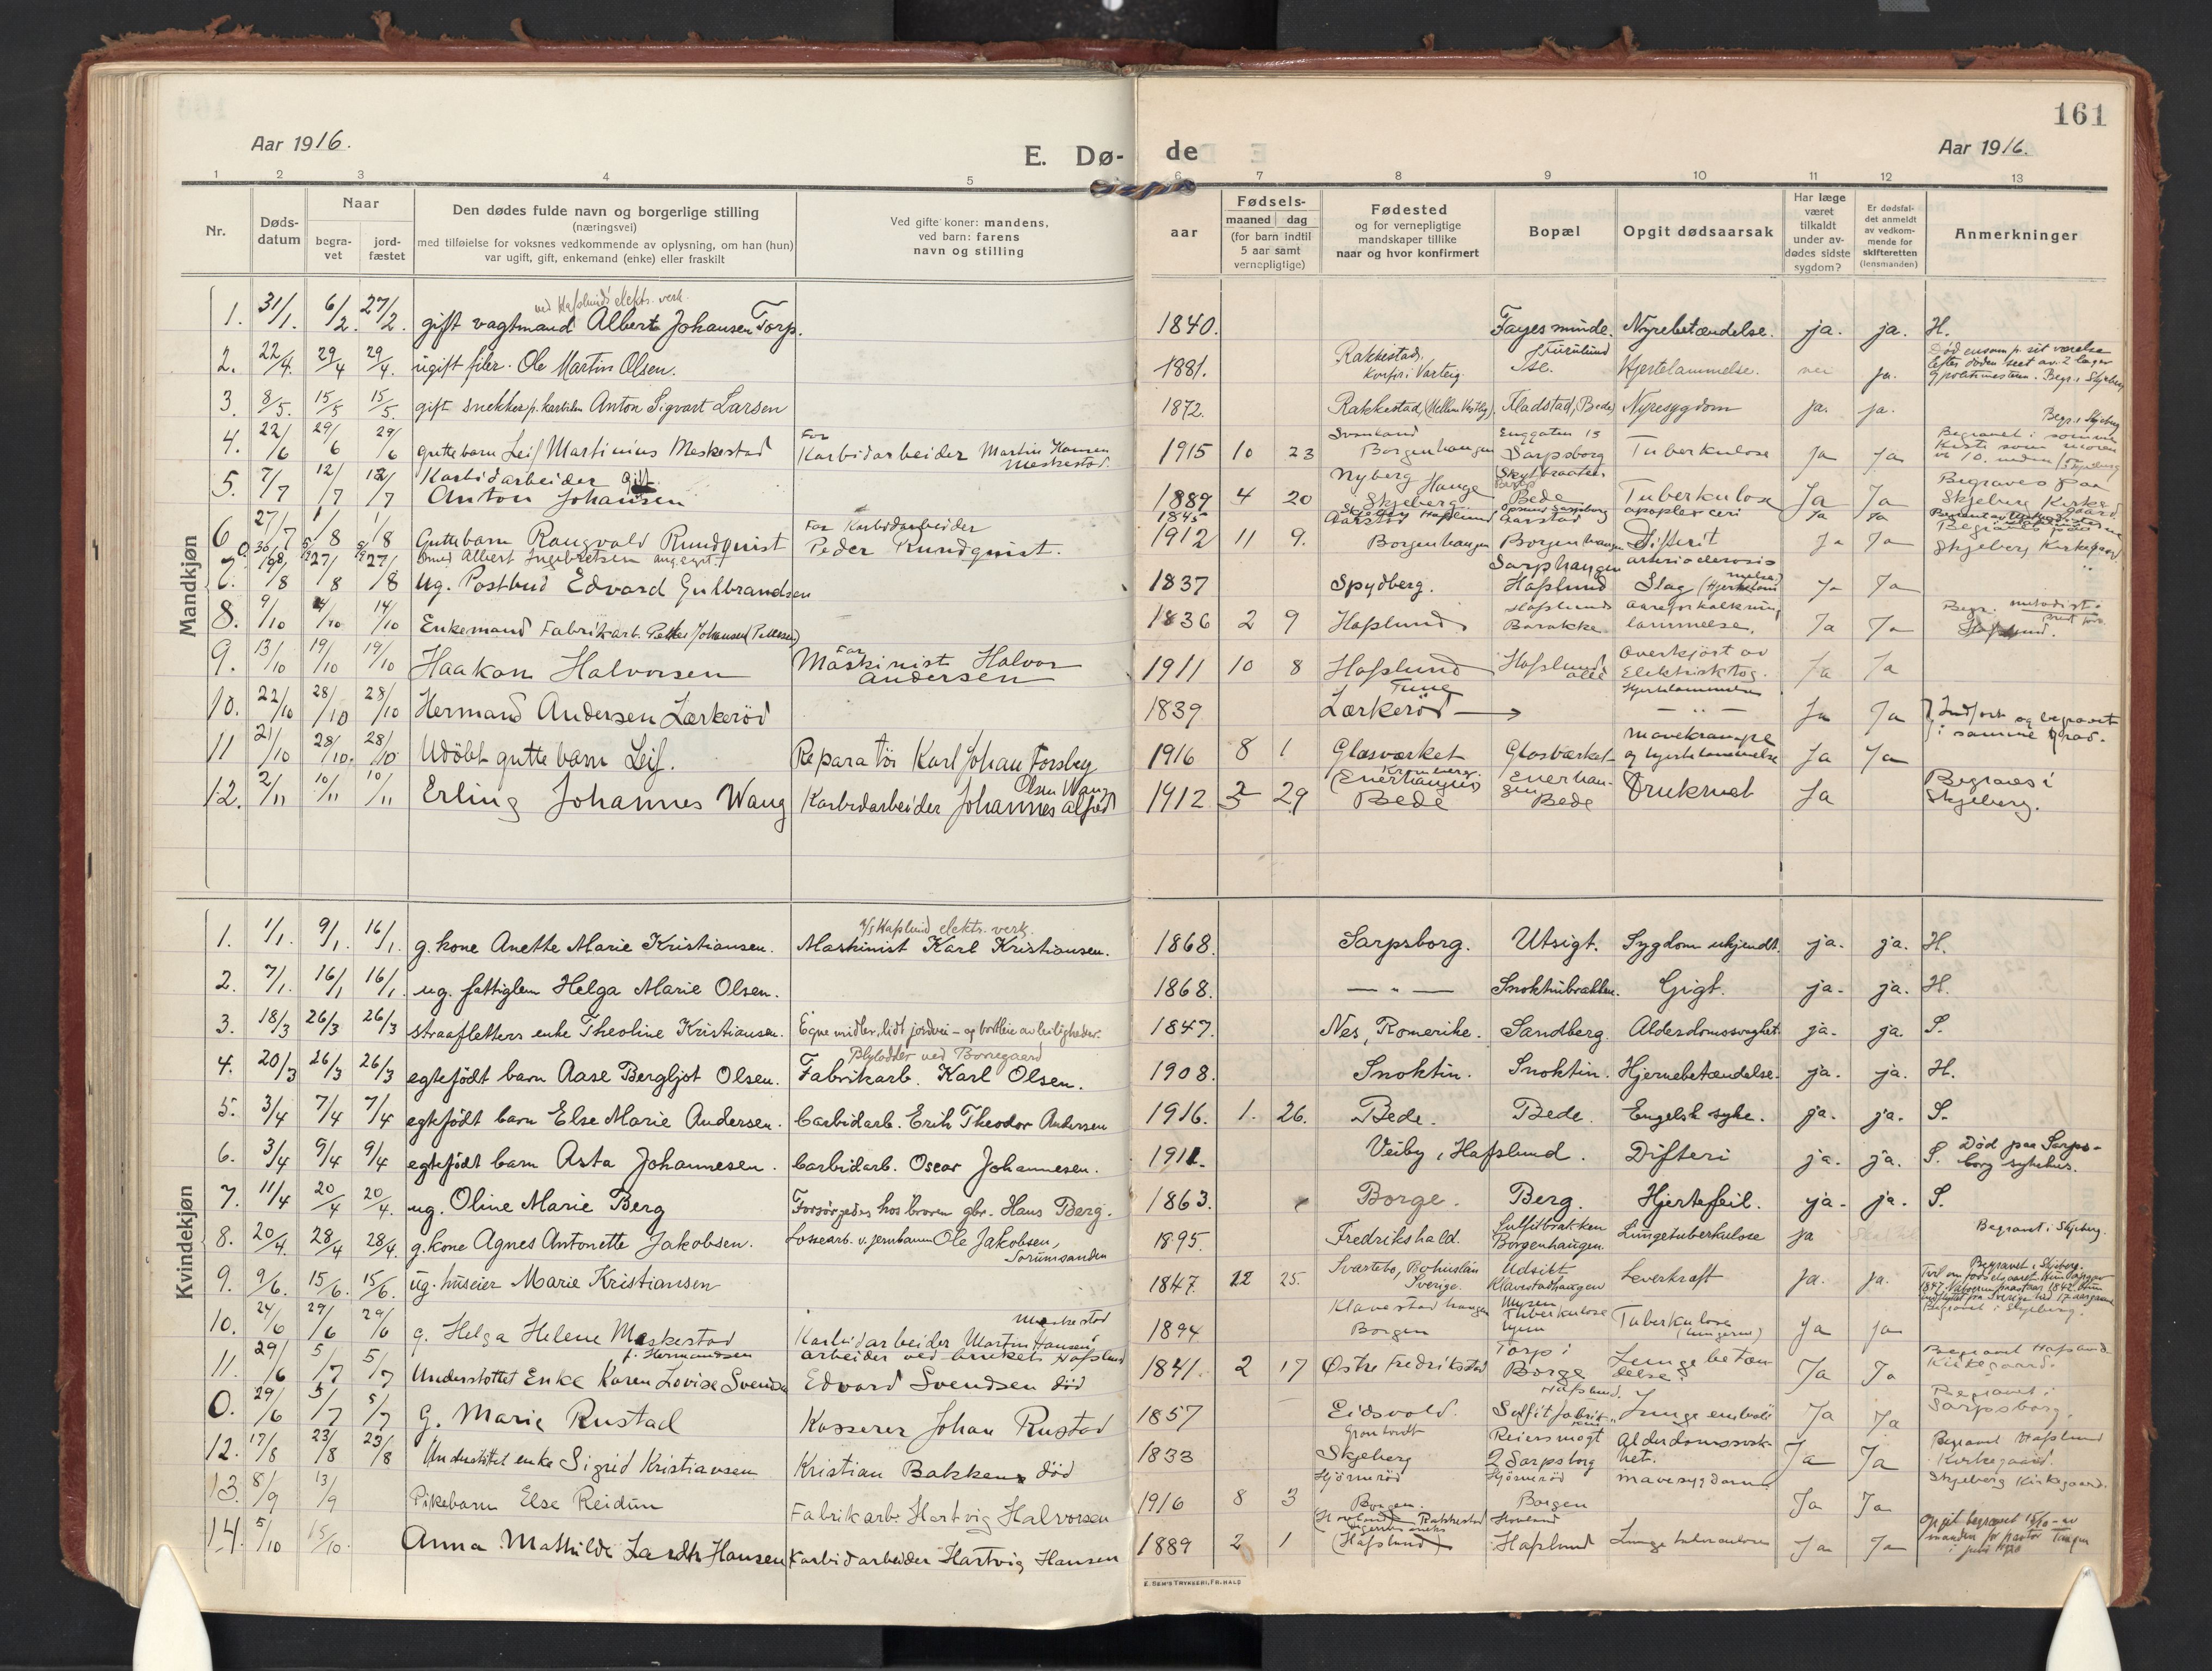 161
Aar 1916.
E. Dø-de
Aar 1916.
1 2 3 4 5 6 7 8 9 10 11 12 13
Nr.
Døds-datum
Naar
begra-vet
jord-fæstet
Den dødes fulde navn og borgerlige stilling
(næringsvei)
med tilføielse for voksnes vedkommende av oplysning, om han (hun)
var ugift, gift, enkemand (enke) eller fraskilt
Ved gifte koner: mandens,
ved barn: farens
navn og stilling
aar
Fødsels-
maaned dag
(for barn indtil
5 aar samt
vernepligtige)
Fødested
og for vernepligtige
mandskaper tillike
naar og hvor konfirmert
Bopæl
Opgit dødsaarsak
Har læge
været
tilkaldt
under av-
dødes sidste
sygdom?
Er dødsfal-
det anmeldt
av vedkom-
mende for
skifteretten
(lensmanden)
Anmerkninger
Mandkjøn
ved Hafslunds elektr. verk.
1. 31/1. 6/2. 27/2. gift vagtmand Albert Johansen Torp. 1840. Fayesminde. Nyrebetændelse. ja. ja. H.
2. 22/4. 29/4 29/4. ugift filer. Ole Martin Olsen. 1881. Rakkestad. Konfir. i Varteig. Ise. Hjertelammelse. nei ja.
3. 8/5. 15/5 15/5. gift snekker p. karbiden Anton Sigvart Larsen 1872. Rakkestad, Fladstad, (Bede) Nyresygdom ja. ja. Begr. i Skjeberg
4. 22/6 29/6 29/6 guttebarn Leif Martinius Meskestad Far Karbidarbeider Martin Hansen Meskestad. 1915 10 23 Borgenhaugen Enggaten 13 Sarpsborg Tuberkulose Ja Ja
5. 7/7 12/7 12/7 Karbidarbeider gift Anton Johansen 1889 4 20 Nyberg Hauge Skjeberg Bede Tuberkulose Ja Ja Begraves paa Skjeberg Kirkegaard
6 27/7 1/8 1/8 Guttebarn Rangvald Rundquist Far Karbidarbeider Peder Rundquist. 1912 11 9. Borgenhaugen Borgenhaugen Difterit Ja Ja Skjeberg Kirkegaard.
Ømed Albert Ingebretsen 1845 Aarstad Hafslund, Aarstad apoplexceri Ja Ja
ug. Postbud Edvard Gulbrandsen 1837 Spydberg. Sarphaugen Hafslund arteriosclerosis Slag Ja Ja
8. 9/10 14/10 Enkemand Fabrikarb. Petter Johansen (Pettersen) 1836 2 9 Hafslund Hafslunds Barakke Aareforkalkning lammelse. Ja Ja
9. 13/10 19/10 19/10 Haakon Halvorsen Far Maskinist Halvor Andersen 1911 10 8 Hafslund Hafslund alle Overkjørt av Elektrisk tog. Ja Ja
10. 22/10 28/10 28/10 Hermand Andersen Lærkerød 1839 Tune Lærkerød Hjertelammelse Ja Ja
11 21/10 28/10. 28/10 Udöbt guttebarn Leif. Reparatör Karl Johan Forsberg 1916 8 1 Glasværket Glasværket mavekrampe og hjertelammelse Ja Ja } Indført og begravet i samme grav.
12. 2/11 10/11 10/11 Erling Johannes Wang Karbidarbeider Johannes Alfred Olsen Wang 1912 29 (Enerhaugen) Bede Enerhaugen Bede Druknet Ja Begraves i Skjeberg.
Kvindekjøn
A/S Hafslund elektr. verk.
1. 1/1. 9/1. 16/1. g. kone Anette Marie Kristiansen. Maskinist Karl Kristiansen. 1868. Sarpsborg. Utsigt. Sygdom ukjendt. ja. ja. H.
2. 7/1. 16/1 16/1. ug. fattiglem Helga Marie Olsen. 1868. — " — Snoktinbrakken. Gigt. ja. ja. H.
3. 18/3 26/3 26/3 straafletters enke Theoline Kristiansen. Egne midler, lidt jordvei - og bortleie av leiligheder. 1847. Nes, Romerike. Sandberg. Alderdomssvaghet. ja. ja. S.
4. 20/3 26/3 26/3 egtefödt barn Aase Bergljot Olsen. Blylodder ved Borregaard Fabrikarb. Karl Olsen. 1908. Snoktin. Snoktin. Hjernebetændelse. ja. ja. H.
5. 3/4 7/4 7/4 egtefödt barn Else Marie Andersen. Carbidarb. Erik Theodor Andersen 1916. 1. 26. Bede. Bede. Engelsk syke. ja. ja. S.
6. 3/4 9/4 9/4 egtefödt barn Asta Johannesen. Carbidarb. Oscar Johannesen. 1911. Veiby, Hafslund. Difteri ja. ja. S. Død paa Sarpsborg sykehus.
7. 11/4 20/4 20/4. ug. Oline Marie Berg Forsørgedes hos broren gbr. Hans Berg. 1863. Borge. Berg. Hjertefeil. ja. ja. S.
8. 20/4. 28/4 28/4. g. kone Agnes Antonette Jakobsen. Lossearb. v. jernbanen Ole Jakobsen, Sorumsanden 1895. Fredrikshald. Sulfitbrakken Borgenhaugen. Lungetuberkulose ja Begravet i Skjeberg.
9. 9/6. 15/6. 15/6. ug. huseier Marie Kristiansen 1847. 12 25. Svartebo, Bohuslän Sverige. Udsikt Klavestadhaugen Leverkræft ja. ja. Begravet i Skjeberg.
10. 24/6 29/6 29/6 g. Helga Helene Meskestad f. Hermansen Karbidarbeider Martin Hansen Meskestad 1894 Klavestadhaugen Borgen Tuberkulose hjem Tuberkulose (lungerne) Ja Ja Begravet i Skjeberg.
11. 29/6 5/7 5/7 Understöttet Enke Karen Lovise Svendsen arbeider ved bruket Hafslund Edvard Svendsen död 1841. 2 17 Østre Fredrikstad Torp i Borge Lungebetændelse. Ja Ja Begravet Hafslund Kirkegaard.
0. 29/6 5/7 5/7 G. Marie Rustad Kasserer Johan Rustad 1857 Eidsvold. Hafslund. Sulfitfabrik Lungeemboli Ja Ja Begravet i Sarpsborg.
12. 17/8 23/8 23/8 Understöttet enke Sigrid Kristiansen Kristian Bakken död 1833 Skjeberg Sarpsborg Alderdomssvakhet. Ja Ja Begravet Hafslund Kirkegaard.
13. 8/9 13/9 Pikebarn Else Reidun Fabrikarb. Hartvig Halvorsen 1916 8 3 Hjörneröd Borgen. Hjörneröd Borgen mavesygdom Ja Ja Skjeberg Kirkegaard.
14. 5/10 15/10. Anna Mathilde Hansen Karbidarbeider Hartvig Hansen 1889 2 1 Rakkestad (Hafslund) Hafslund Lungetuberculose Ja Ja Opgit begravet 15/10 av manden for pastor
E. SEM'S TRYKKERI, FR.HALD